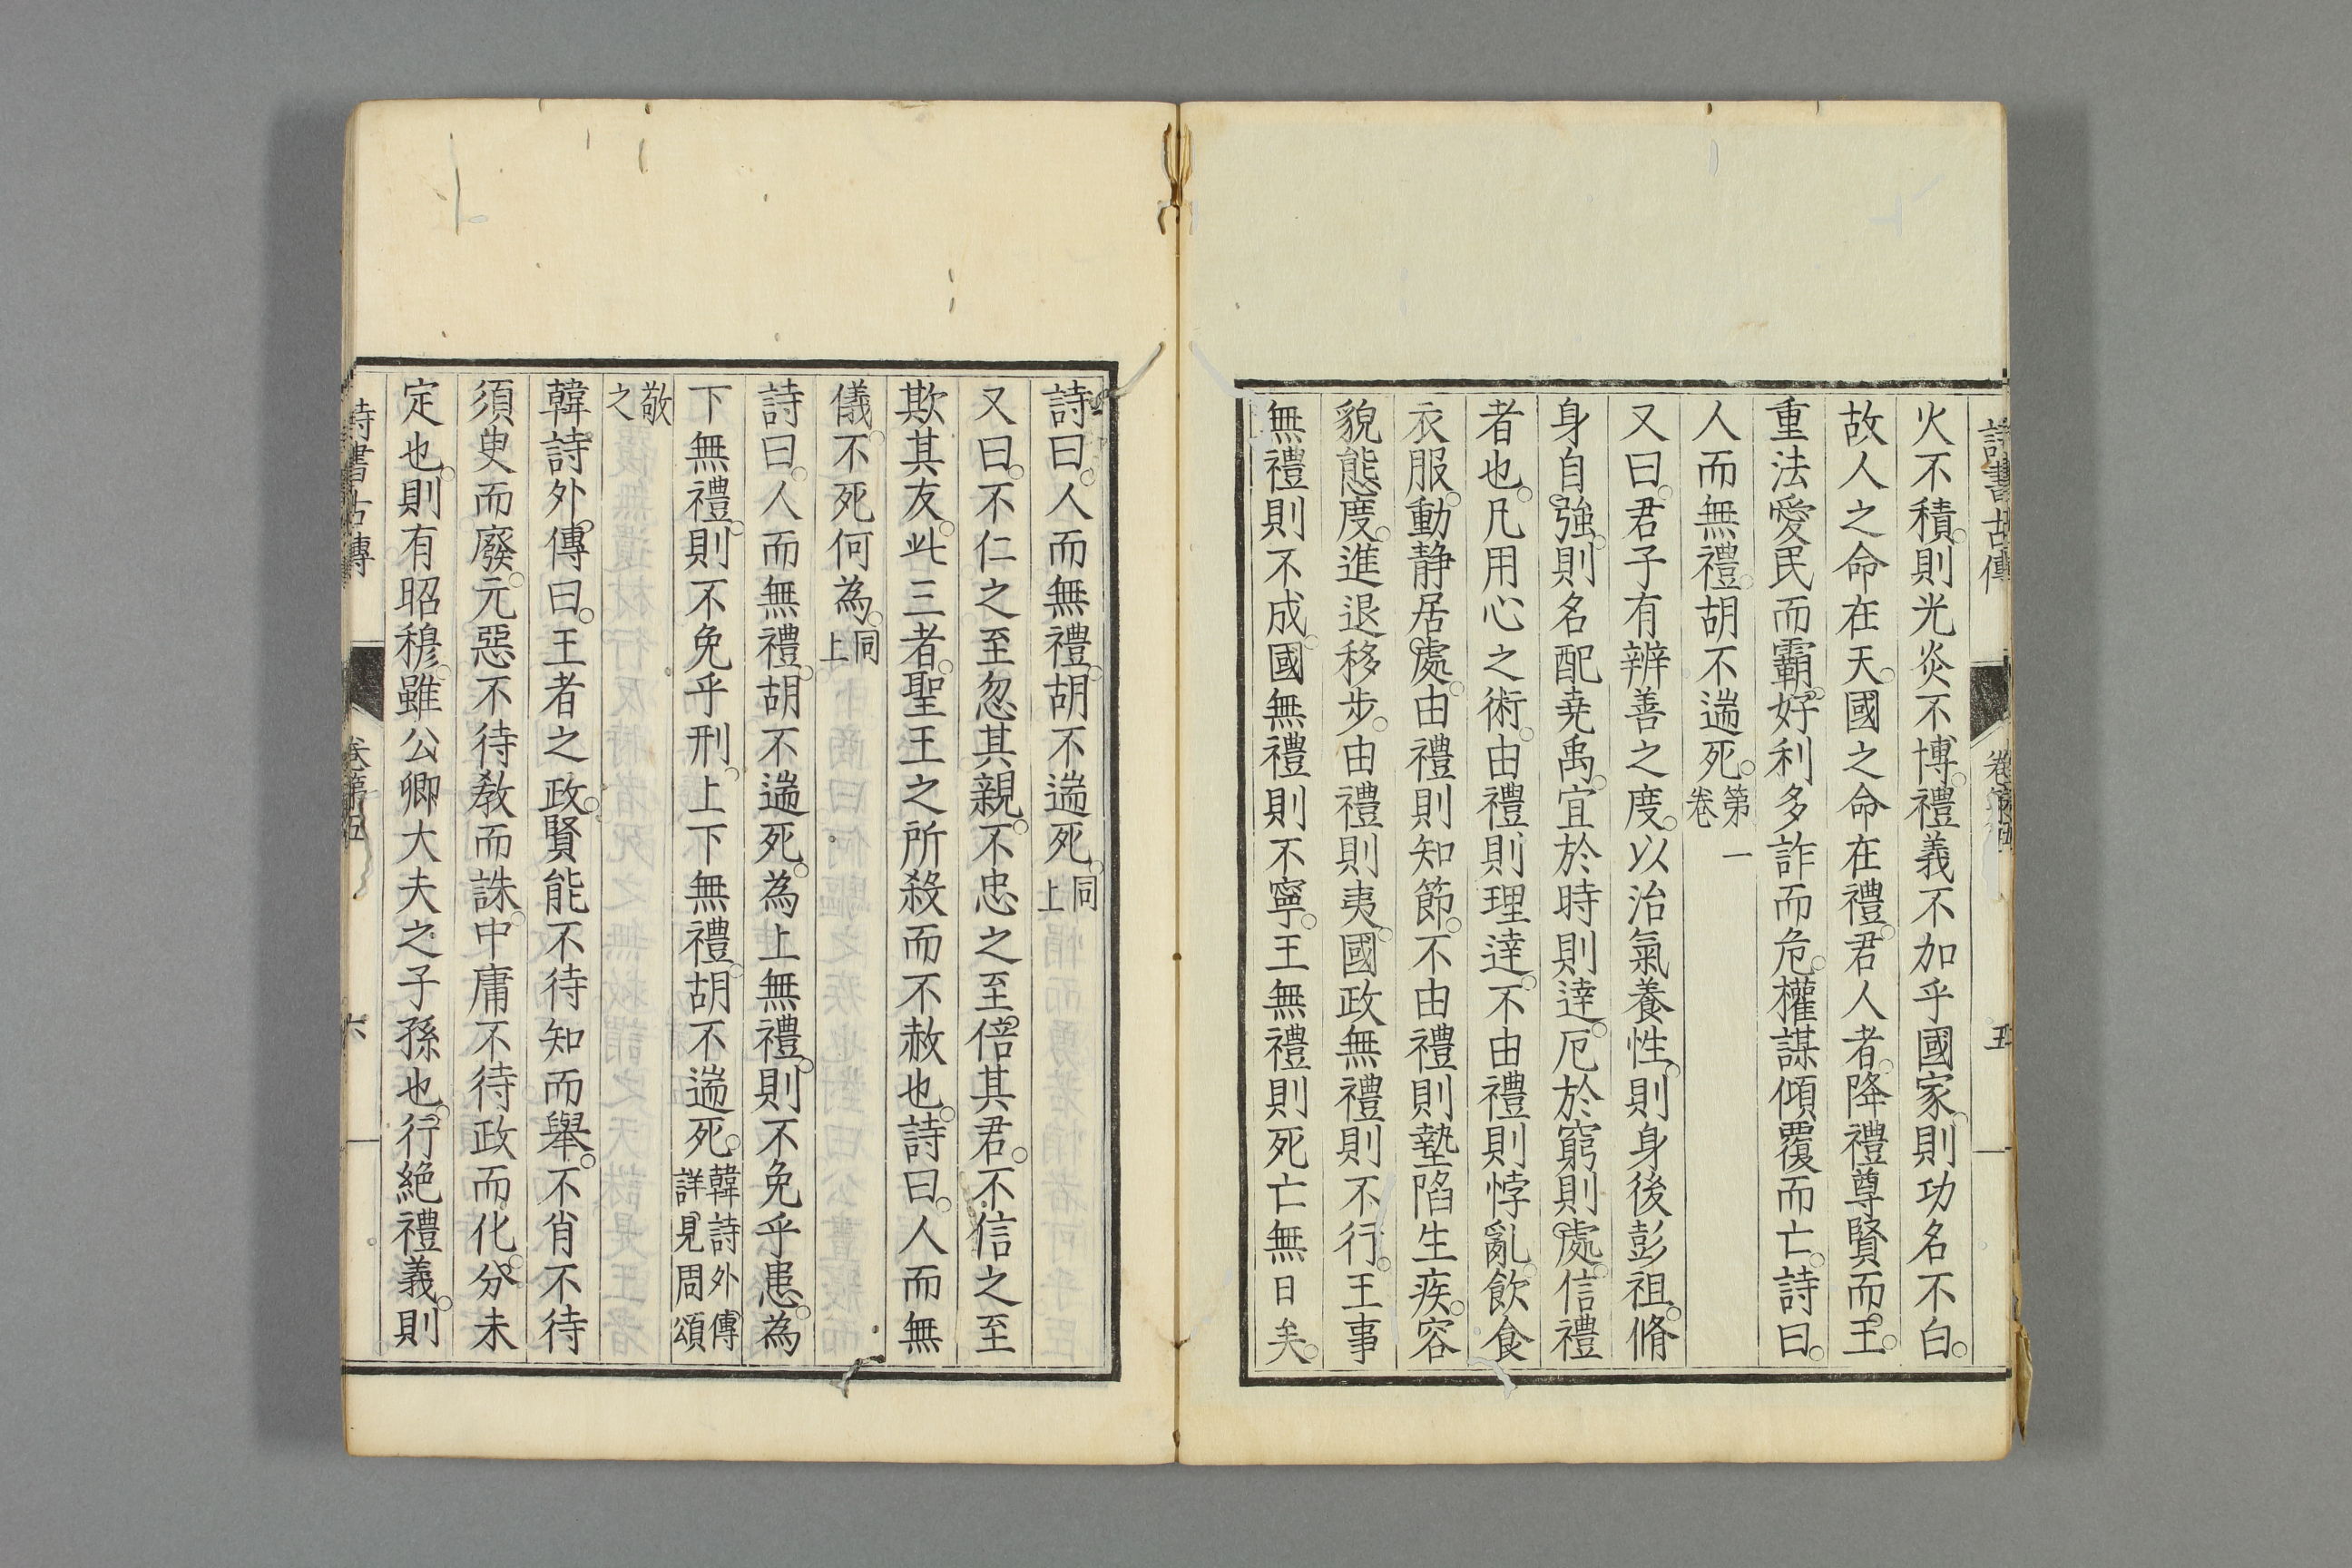 詩書古傳 卷第五 五
火不積。則光炎不博。禮義不加乎國家。則功名不白。
故人之命在天。國之命在禮。君人者。降禮尊賢而王。
重法愛民而霸。好利多詐而危。權謀傾覆而亡。詩曰。
人而無禮。胡不遄死。第一卷
又曰。君子有辨善之度。以治氣養性。則身後彭祖。脩
身自強。則名配尭禹。宜於時則達。厄於窮則處。信禮
者也。凡用心之術。由禮則理達。不由禮則悖亂。飲食
衣服。動静居處。由禮則知節。不由禮則墊陷生疾。容
貌態度。進退移步。由禮則夷。國政無禮則不行。王事
無禮則不成。國無禮則不寧。王無禮則死亡無日矣。
詩曰。人而無禮。胡不遄死。同上
又曰。不仁之至忽其親。不忠之至倍其君。不信之至
欺其友。此三者。聖王之所殺而不赦也。詩曰。人而無
儀。不死何為。同上
詩曰。人而無禮。胡不遄死。為上無禮。則不免乎患。為
下無禮。則不免乎刑。上下無禮。胡不遄死。韓詩外傳詳見周頌
敬之
韓詩外傳曰。王者之政。賢能不待知而舉。不肖不待
須臾而廢。元惡不待教而誅。中庸不待政而化。分未
定也。則有昭穆。雖公卿大夫之子孫也。行絶禮義。則
詩書古傳 卷第五 六